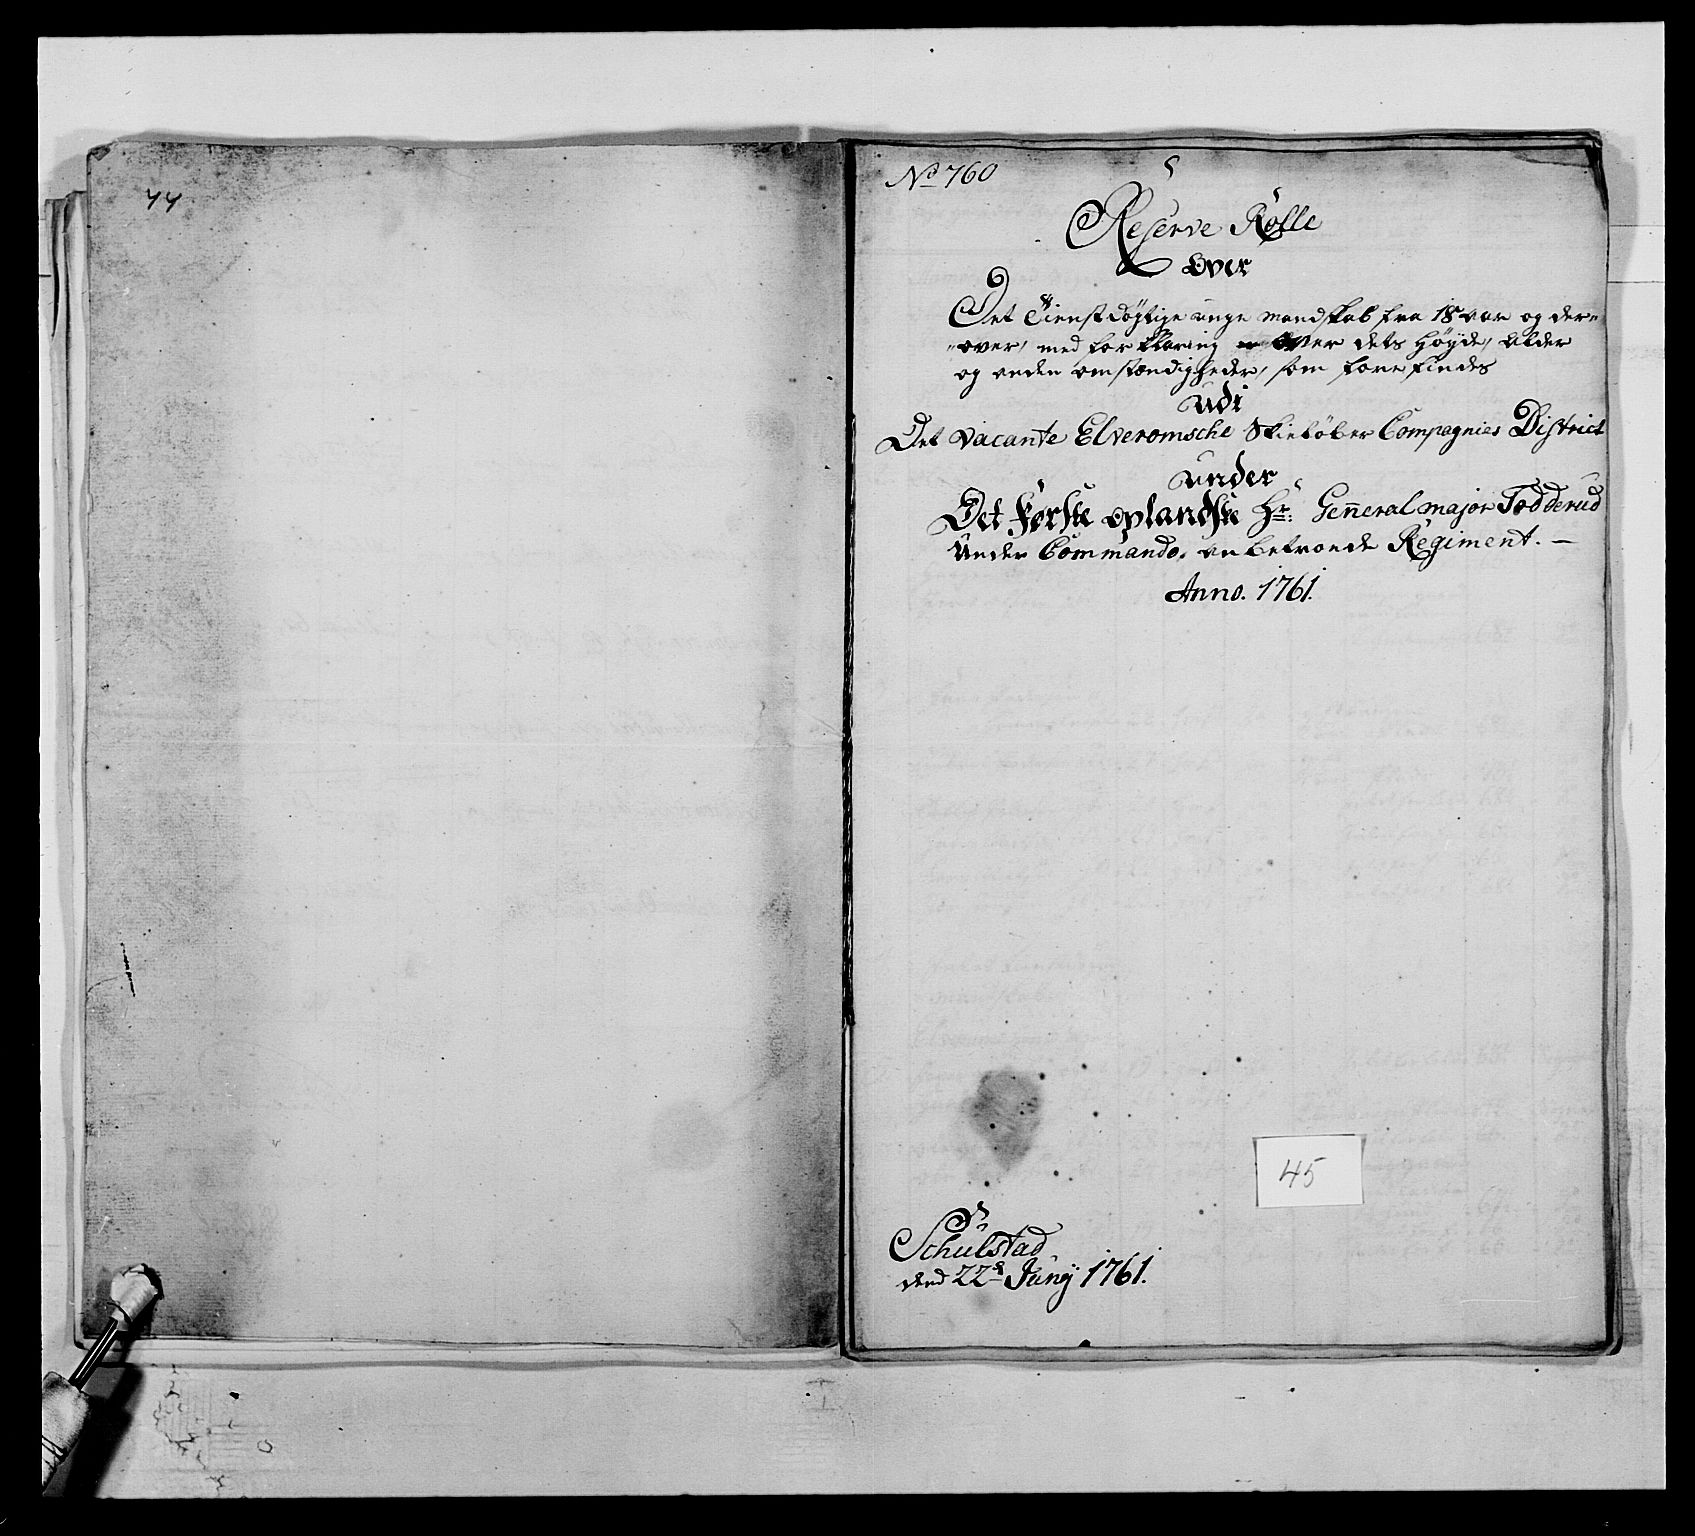 44
No 760
Reserve Rolle
Over
Det Tienstdøgtige unge mandskab fra 18 aar og der=
=over, med forklaring over dets Høyde, Alder
og anden omstændigheder, som forefindes
udi
Det vacante Elveromsche Skieløber Compagnies District
under
Det Første oplandske Hr: General major Todderud
Under Commando anbetroede Regiment. —
Anno. 1761.
45
Schulstad
dend 22d Junÿ 1761.